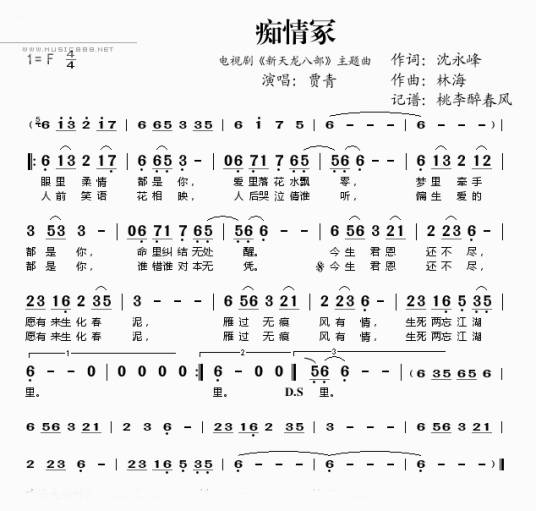 痴情冢
WWW.MUSIC888.NET
1=F 4/4
电视剧《新天龙八部》主题曲 作词：沈永峰
演唱：贾青 作曲：林海
记谱：桃李醉春风
( 6 i3 2 i7 | 6 65 3 35 | 6 i 7 5 | 6 - - - | 6 - - - )
|: 6 13 2 17 | 6 65 3 - | 06 71 7 65 | 56 6 - - | 6 13 2 12 |
眼里 柔情 都是 你， 爱里落花水飘 零， 梦里 牵手
人前 笑语 花相 映， 人后哭泣倩谁 听， 偏生 爱的
3 53 3 - | 06 71 7 65 | 56 6 - - | 6 56 3 21 | 2 23 6 - |
都是 你， 命里纠结无处 醒。 今生 君恩 还不 尽，
都是 你， 谁惜谁对本无 凭。 今生 君恩 还不 尽，
23 16 2 35 | 3 - - - | 6 56 3 21 | 2 23 6 - | 23 16 5 35 |
愿有来生化春 泥， 雁过 无痕 风有 情， 生死两忘江湖
愿有来生化春 泥， 雁过 无痕 风有 情， 生死两忘江湖
1 2 3
6 - - 0 | 0 0 0 0 :| 6 - - 0 || 56 6 - - | ( 6 35 65 6 |
里。 里。 D.S 里。
6 56 3 21 | 2 3 6 - | 23 16 2 35 | 3 - - - | 6 56 3 21 |
2 23 6 - | 23 16 5 35 | 6 - - - | 6 - - - | 6 - - - ) ||